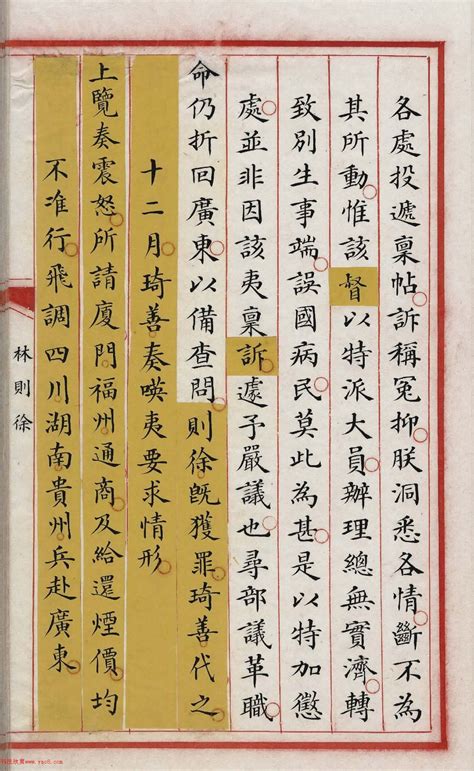 各處投遞稟帖訴稱冤抑朕洞悉各情斷不為
其所動惟該督以特派大員辦理總無實濟轉
致別生事端誤國病民莫此為甚是以特加懲
處並非因該夷稟訴遽予嚴議也尋部議革職
命仍折回廣東以備查問則徐旣獲罪琦善代之
十二月琦善奏暎夷要求情形
上覽奏震怒所請廈門福州通商及給還煙價均
不准行飛調四川湖南貴州兵赴廣東
林則徐